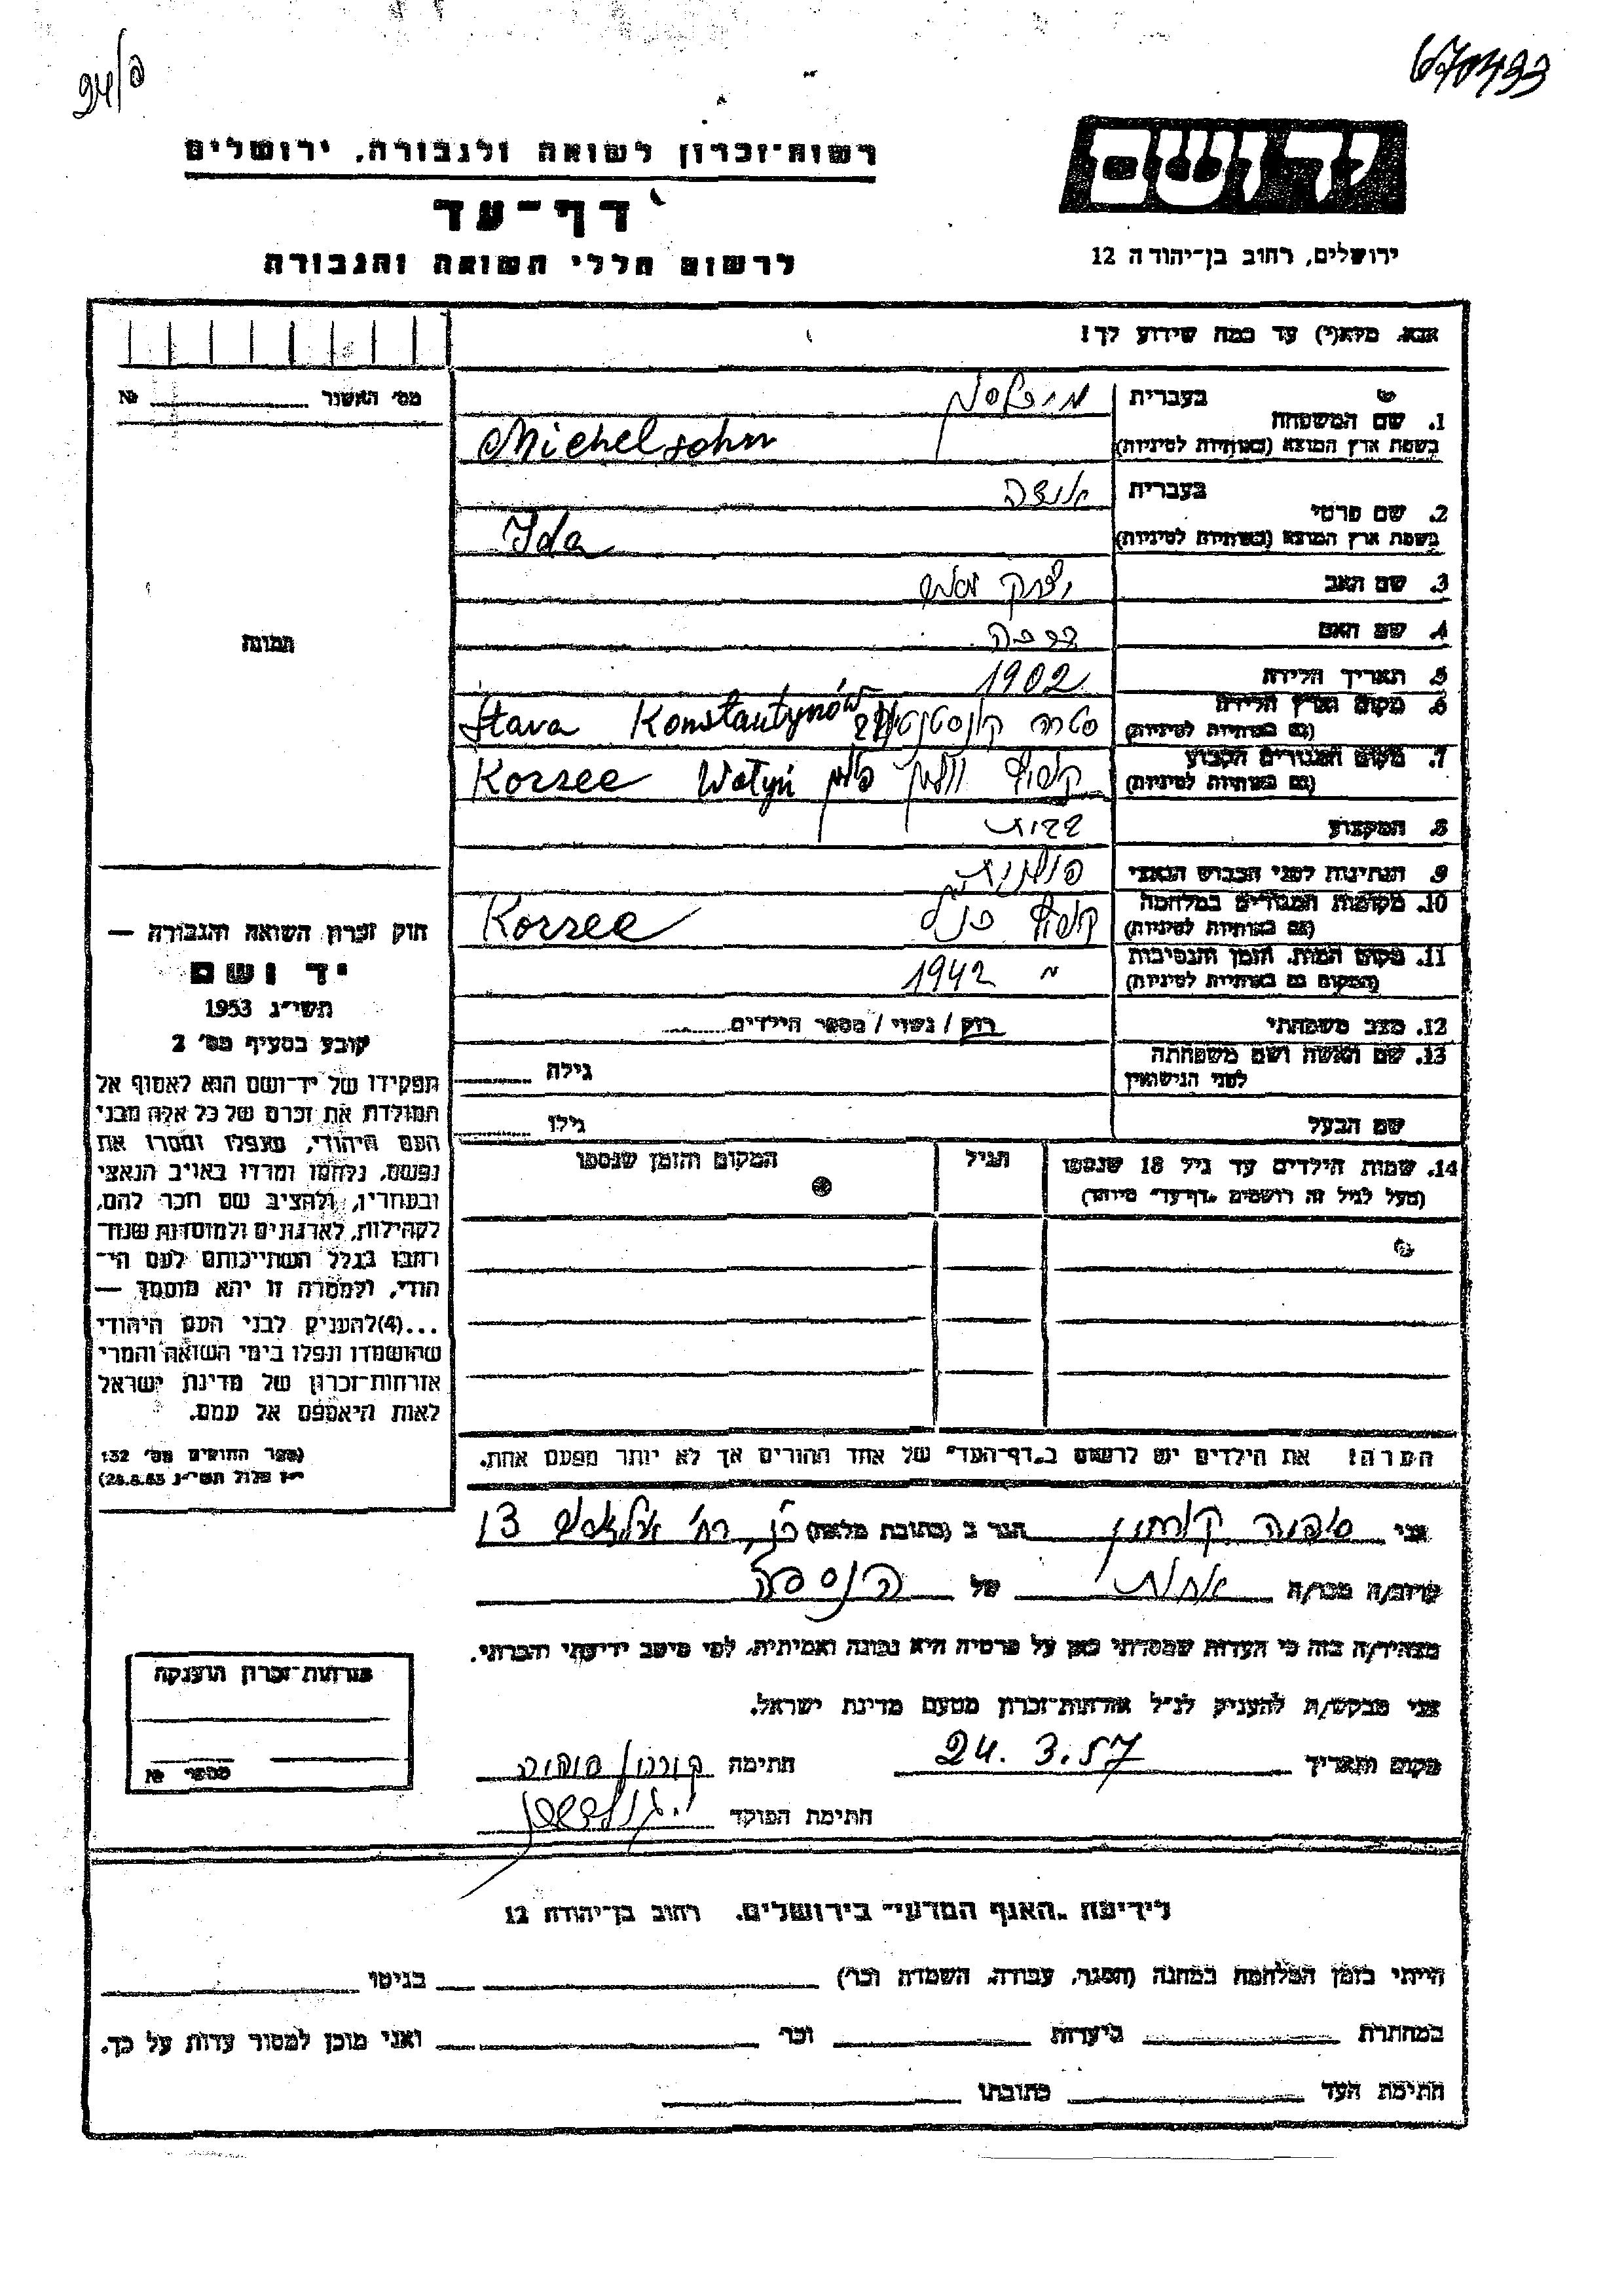 670433
רשות-זכרון לשואה ולגבורה, ירושלים
דף-עד
לרשום חללי השואה והגבורה
יד ושם
ירושלים, רחוב בן-יהודה 12
אנא, מלא(י) עד כמה שידוע לך!
מס' האשור №
1. שם המשפחה
בעברית
בשפת ארץ המוצא (באותיות לטיניות) Michelsohn
2. שם פרטי
בעברית
בשפת ארץ המוצא (באותיות לטיניות) Ida
3. שם האב יצחק
4. שם האם
5. תאריך הלידה 1902
6. מקום וארץ הלידה (גם באותיות לטיניות) סטרה Stara Konstantynów
7. מקום המגורים הקבוע (גם באותיות לטיניות) Korzec Wołyń
8. המקצוע
9. הנתינות לפני הכבוש הנאצי פולנית
10. מקומות המגורים במלחמה (גם באותיות לטיניות) Korzec
11. מקום המות, הזמן והנסיבות (המקום גם באותיות לטיניות) 1942
12. מצב משפחתי רווק / נשוי / מספר הילדים
13. שם האשה ושם משפחתה לפני הנישואין גילה
שם הבעל גילו
14. שמות הילדים עד גיל 18 שנספו (מעל לגיל זה רושמים "דף-עד" מיוחד)
הגיל
המקום והזמן שנספו
הערה! את הילדים יש לרשום ב"דף-העד" של אחד ההורים אך לא יותר מפעם אחת.
תמונה
חוק זכרון השואה והגבורה —
יד ושם
תשי"ג 1953
קובע בסעיף מס' 2
תפקידו של יד-ושם הוא לאסוף אל
המולדת את זכרם של כל אלה מבני
העם היהודי, שנפלו ומסרו את
נפשם, נלחמו ומרדו באויב הנאצי
ובעוזריו, ולהציב שם וזכר להם,
לקהילות, לארגונים ולמוסדות שנח-
רבו בגלל השתייכותם לעם הי-
הודי, ולמטרה זו יהא מוסמך —
...(4)להעניק לבני העם היהודי
שהושמדו ונפלו בימי השואה והמרי
אזרחות-זכרון של מדינת ישראל
לאות היאספם אל עמם.
(ספר החוקים מס' 132
י"ז אלול תשי"ג 28.8.53)
אני הגר ב (כתובת מלאה) 13
קרוב/ה מכר/ה של הנספה
מצהיר/ה בזה כי העדות שמסרתי כאן על פרטיה היא נכונה ואמיתית, לפי מיטב ידיעתי והכרתי.
אני מבקש/ת להעניק לנ"ל אזרחות-זכרון מטעם מדינת ישראל.
מקום ותאריך 24.3.57 חתימה
חתימת הפוקד
אזרחות-זכרון הוענקה
מספר №
לידיעת "האגף המדעי" בירושלים, רחוב בן-יהודה 12
הייתי בזמן המלחמה במחנה (הסגר, עבודה, השמדה וכו') בגיטו
במחתרת ביערות וכו' ואני מוכן למסור עדות על כך.
חתימת העד כתובתו